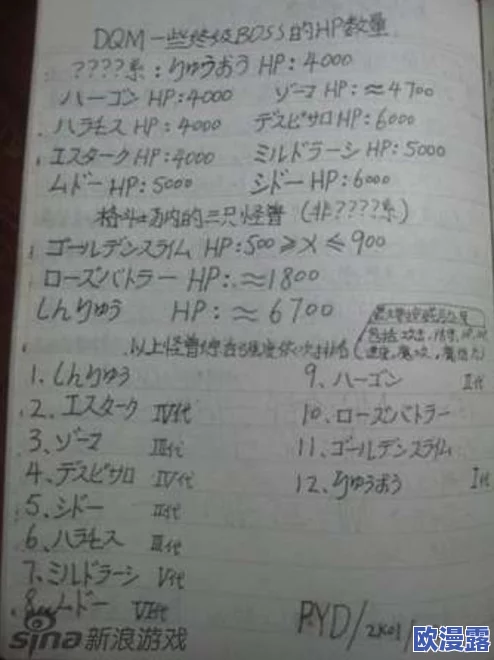 DQM一些终级BOSS的HP数量
????系:りゅうおう HP:4000
ハーゴン HP:4000 ゾーマ HP:≈4700
ハラモス HP:4000 デスピサロ HP:6000
エスターク HP:4000 ミルドラーシ HP:5000
ムドー HP:5000 シドー HP:6000
格斗场内的三只怪兽 (非????系)
ゴールデンスライム HP:500≥X≤900
ローズバトラー HP:≈1800
しんりゅう HP:≈6700
以上怪兽
1、しんりゅう 9、ハーゴン II代
2、エスターク IV代 10、ローズバトラー
3、ゾーマ III代 11、ゴールデンスライム
4、デスピサロ IV代 12、りゅうおう I代
5、シドー II代
6、ハラモス III代
7、ミルドラーシ V代
8、ムドー VI代
P.YD/2K01/
sina新浪游戏
欧漫露